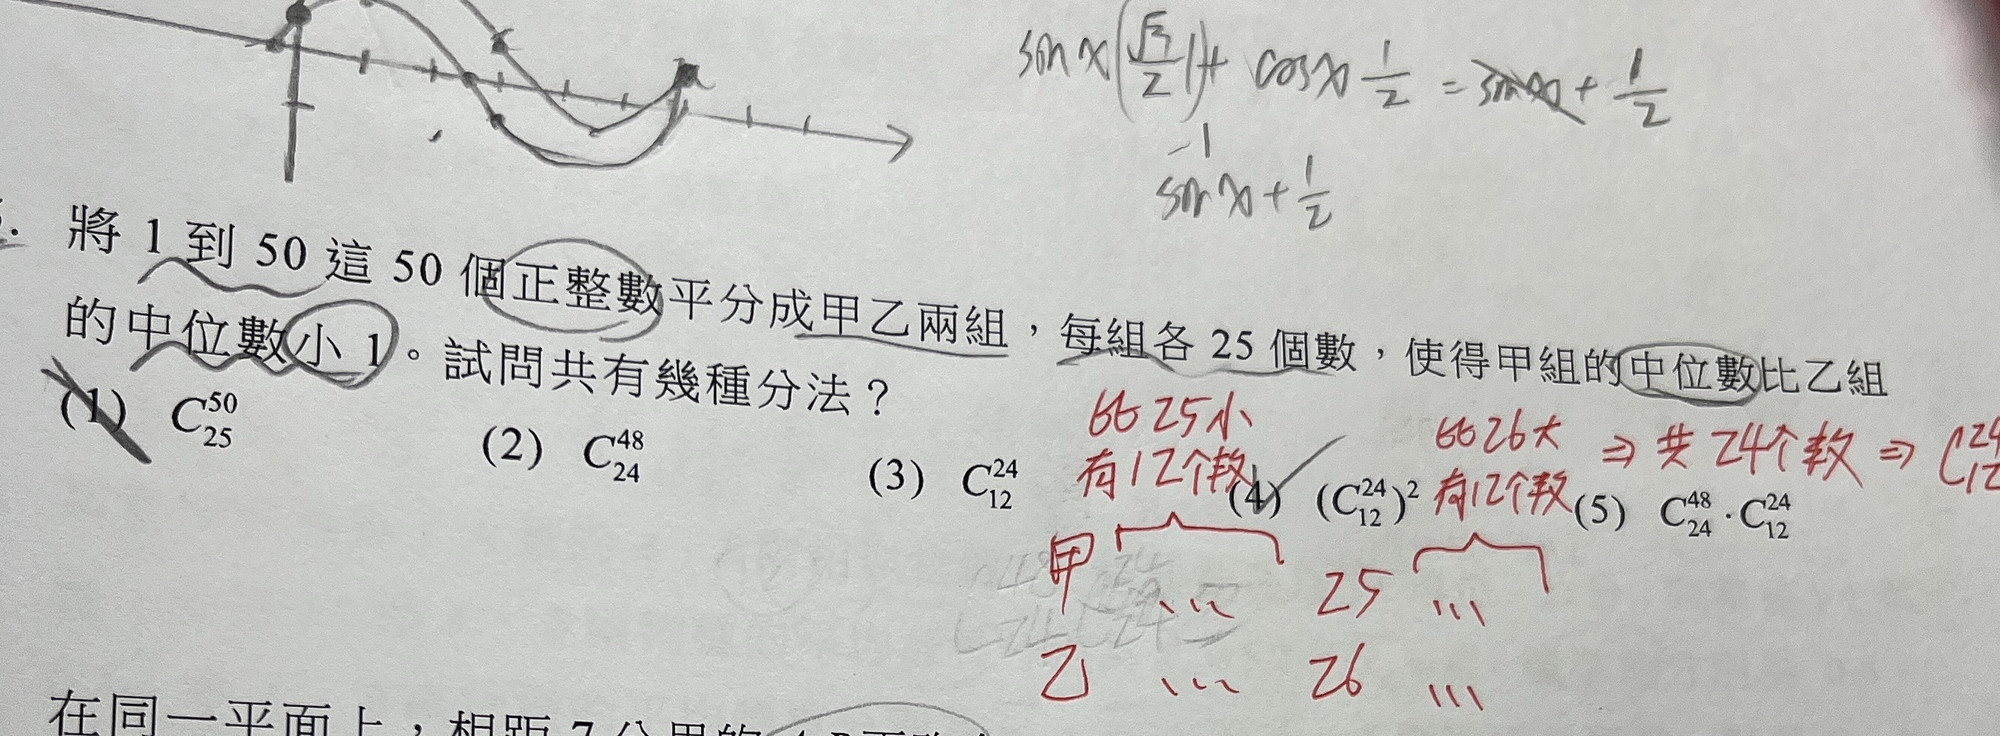 sin x (√3/2 - 1) + cos x 1/2 = sin x + 1/2
sin x + 1/2
將 1 到 50 這 50 個正整數平分成甲乙兩組，每組各 25 個數，使得甲組的中位數比乙組
的中位數小 1。試問共有幾種分法？
(1) C^{50}_{25} (2) C^{48}_{24} (3) C^{24}_{12} (4) (C^{24}_{12})^2 (5) C^{48}_{24} · C^{24}_{12}
比25小
有12个数
比26大
有12个数
⇒ 共 24个数 ⇒ C^{24}_{12}
甲 ... 25 ...
乙 ... 26 ...
在同一平面上，相距 7 公里的